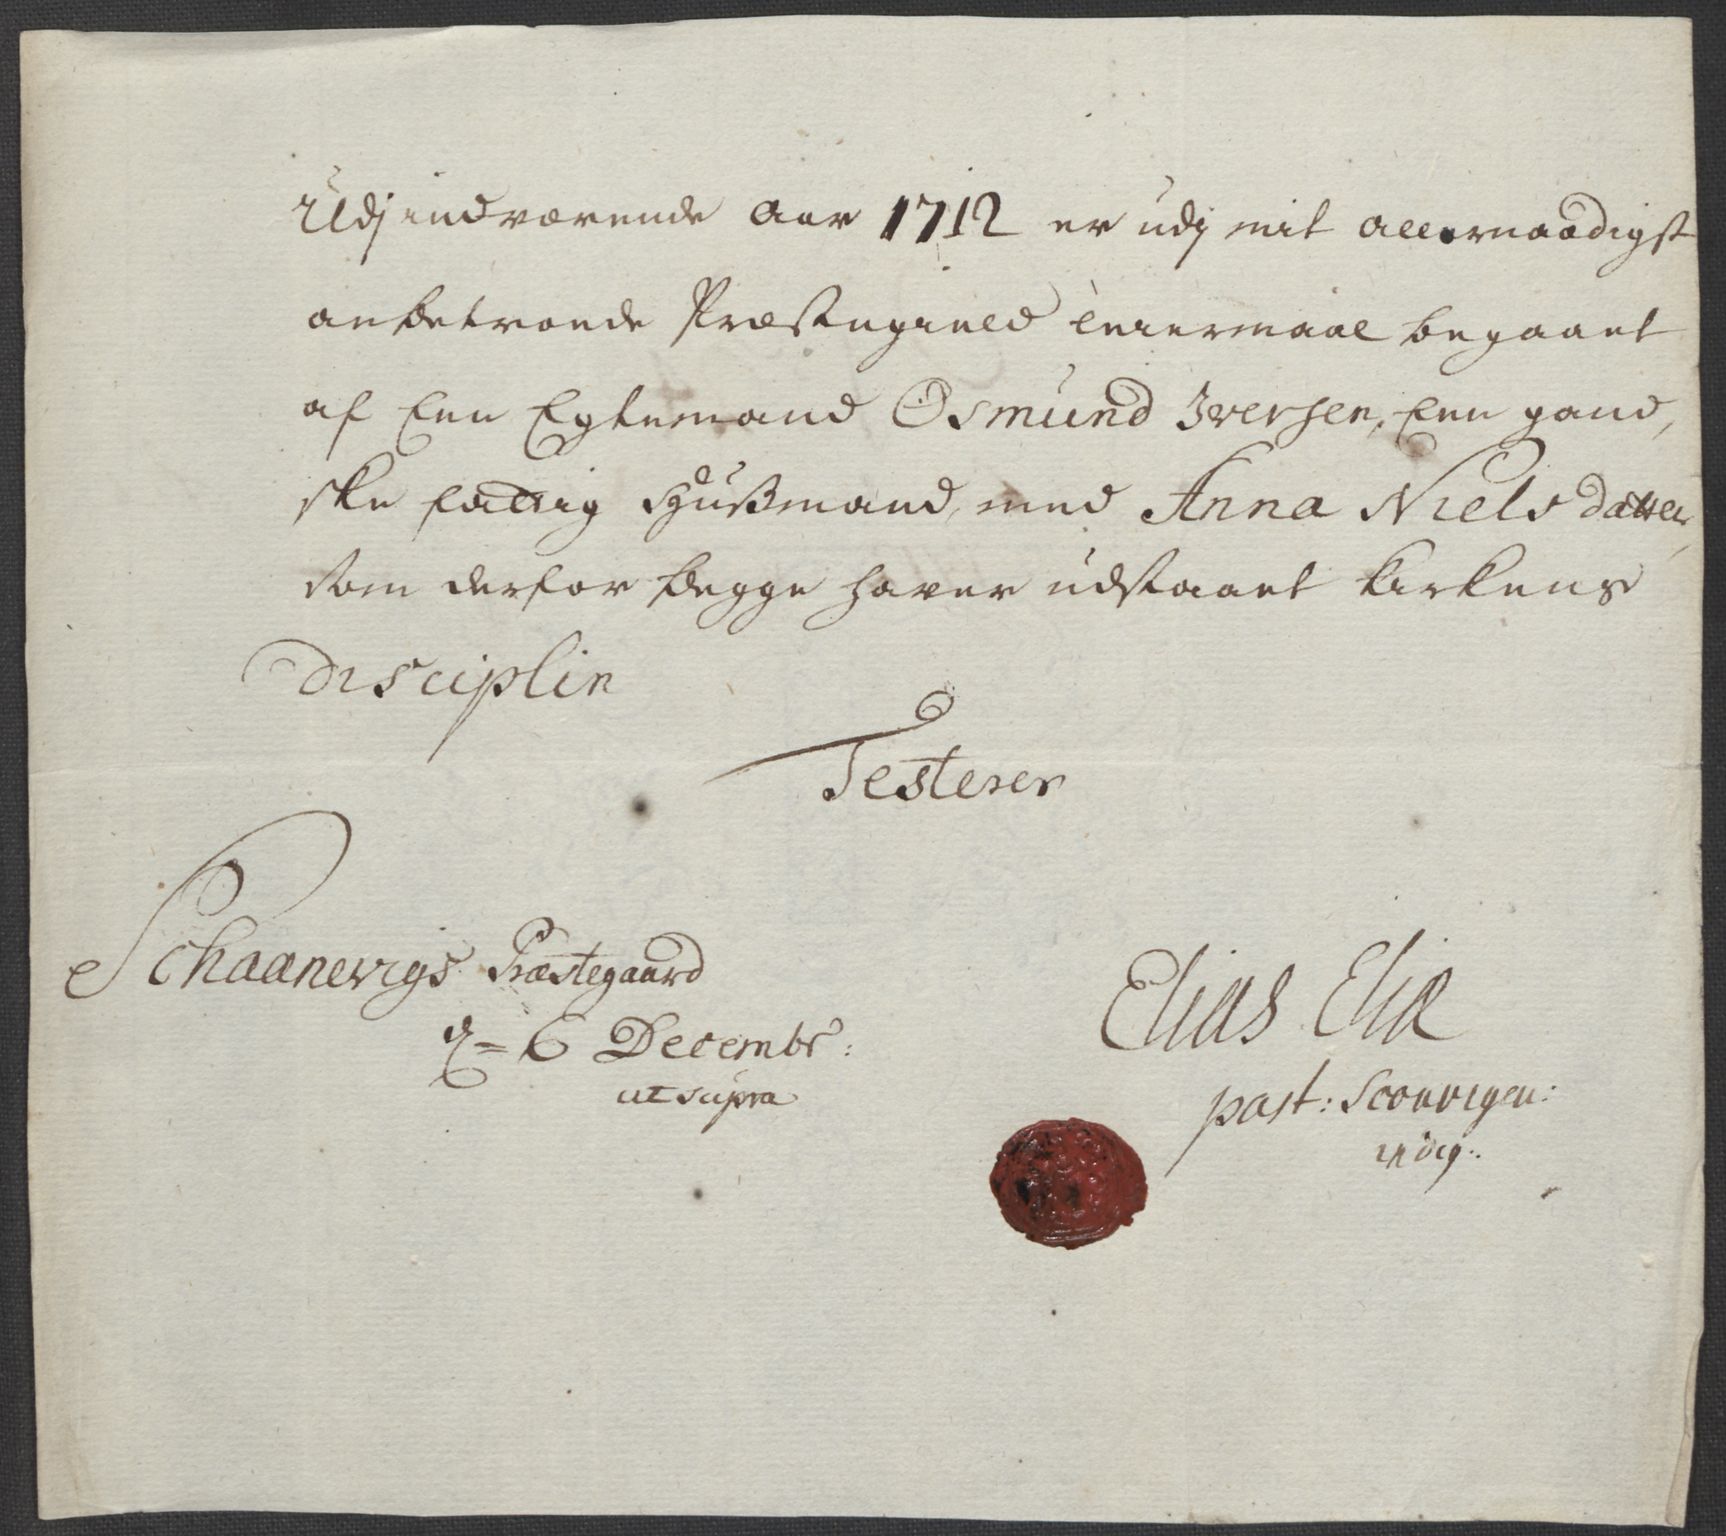 Udj indværende Aar 1712 er udj mit allernaadigst
anbetroede Præstegield leiermaal begaaet
af Een Egtemand Osmund Iversen, Een gand,
ske fattig Huußmand, med Anna Nielsdatter,
som derfor begge hafver udstaaet kirkens
Disciplin
Testerer
Schaanevigs Præstegaard
d= 6 Decembr:
ut supra
Elias Eliæ
past: Sconvigen:
indig: